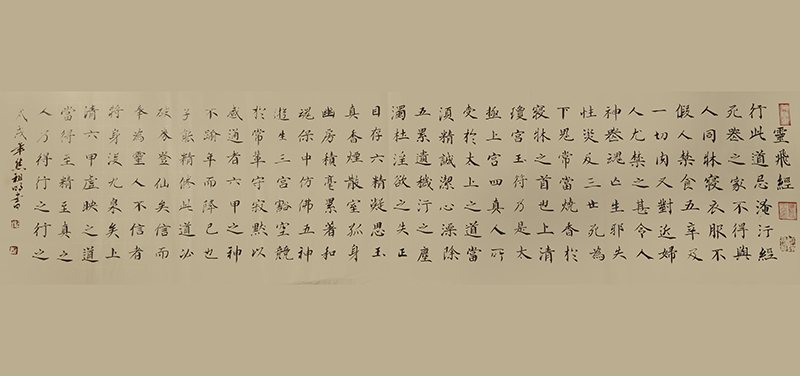 靈飛經
行此道忌淹汙經
死喪之家不得與
人同牀寢衣服不
假人禁食五辛及
一切肉又對近婦
人尤禁之甚令人
神喪魂亡生邪失
性災及三世死為
下鬼常當燒香於
寢牀之首也上清
瓊宮玉符乃是太
極上宮四真人所
受於太上之道當
須精誠潔心澡除
五累遺穢汙之塵
濁杜淫欲之失正
目存六精凝思玉
真香煙散室孤身
幽房積毫累著和
魂保中仿佛五神
遊生三宮豁空競
於常輩守寂默以
感道者六甲之神
不踰年而降己也
子能精修此道必
破券登仙矣信而
奉為靈人不信者
將身沒九泉矣上
清六甲虛映之道
當得至精至真之
人乃得行之行之
戊戌年